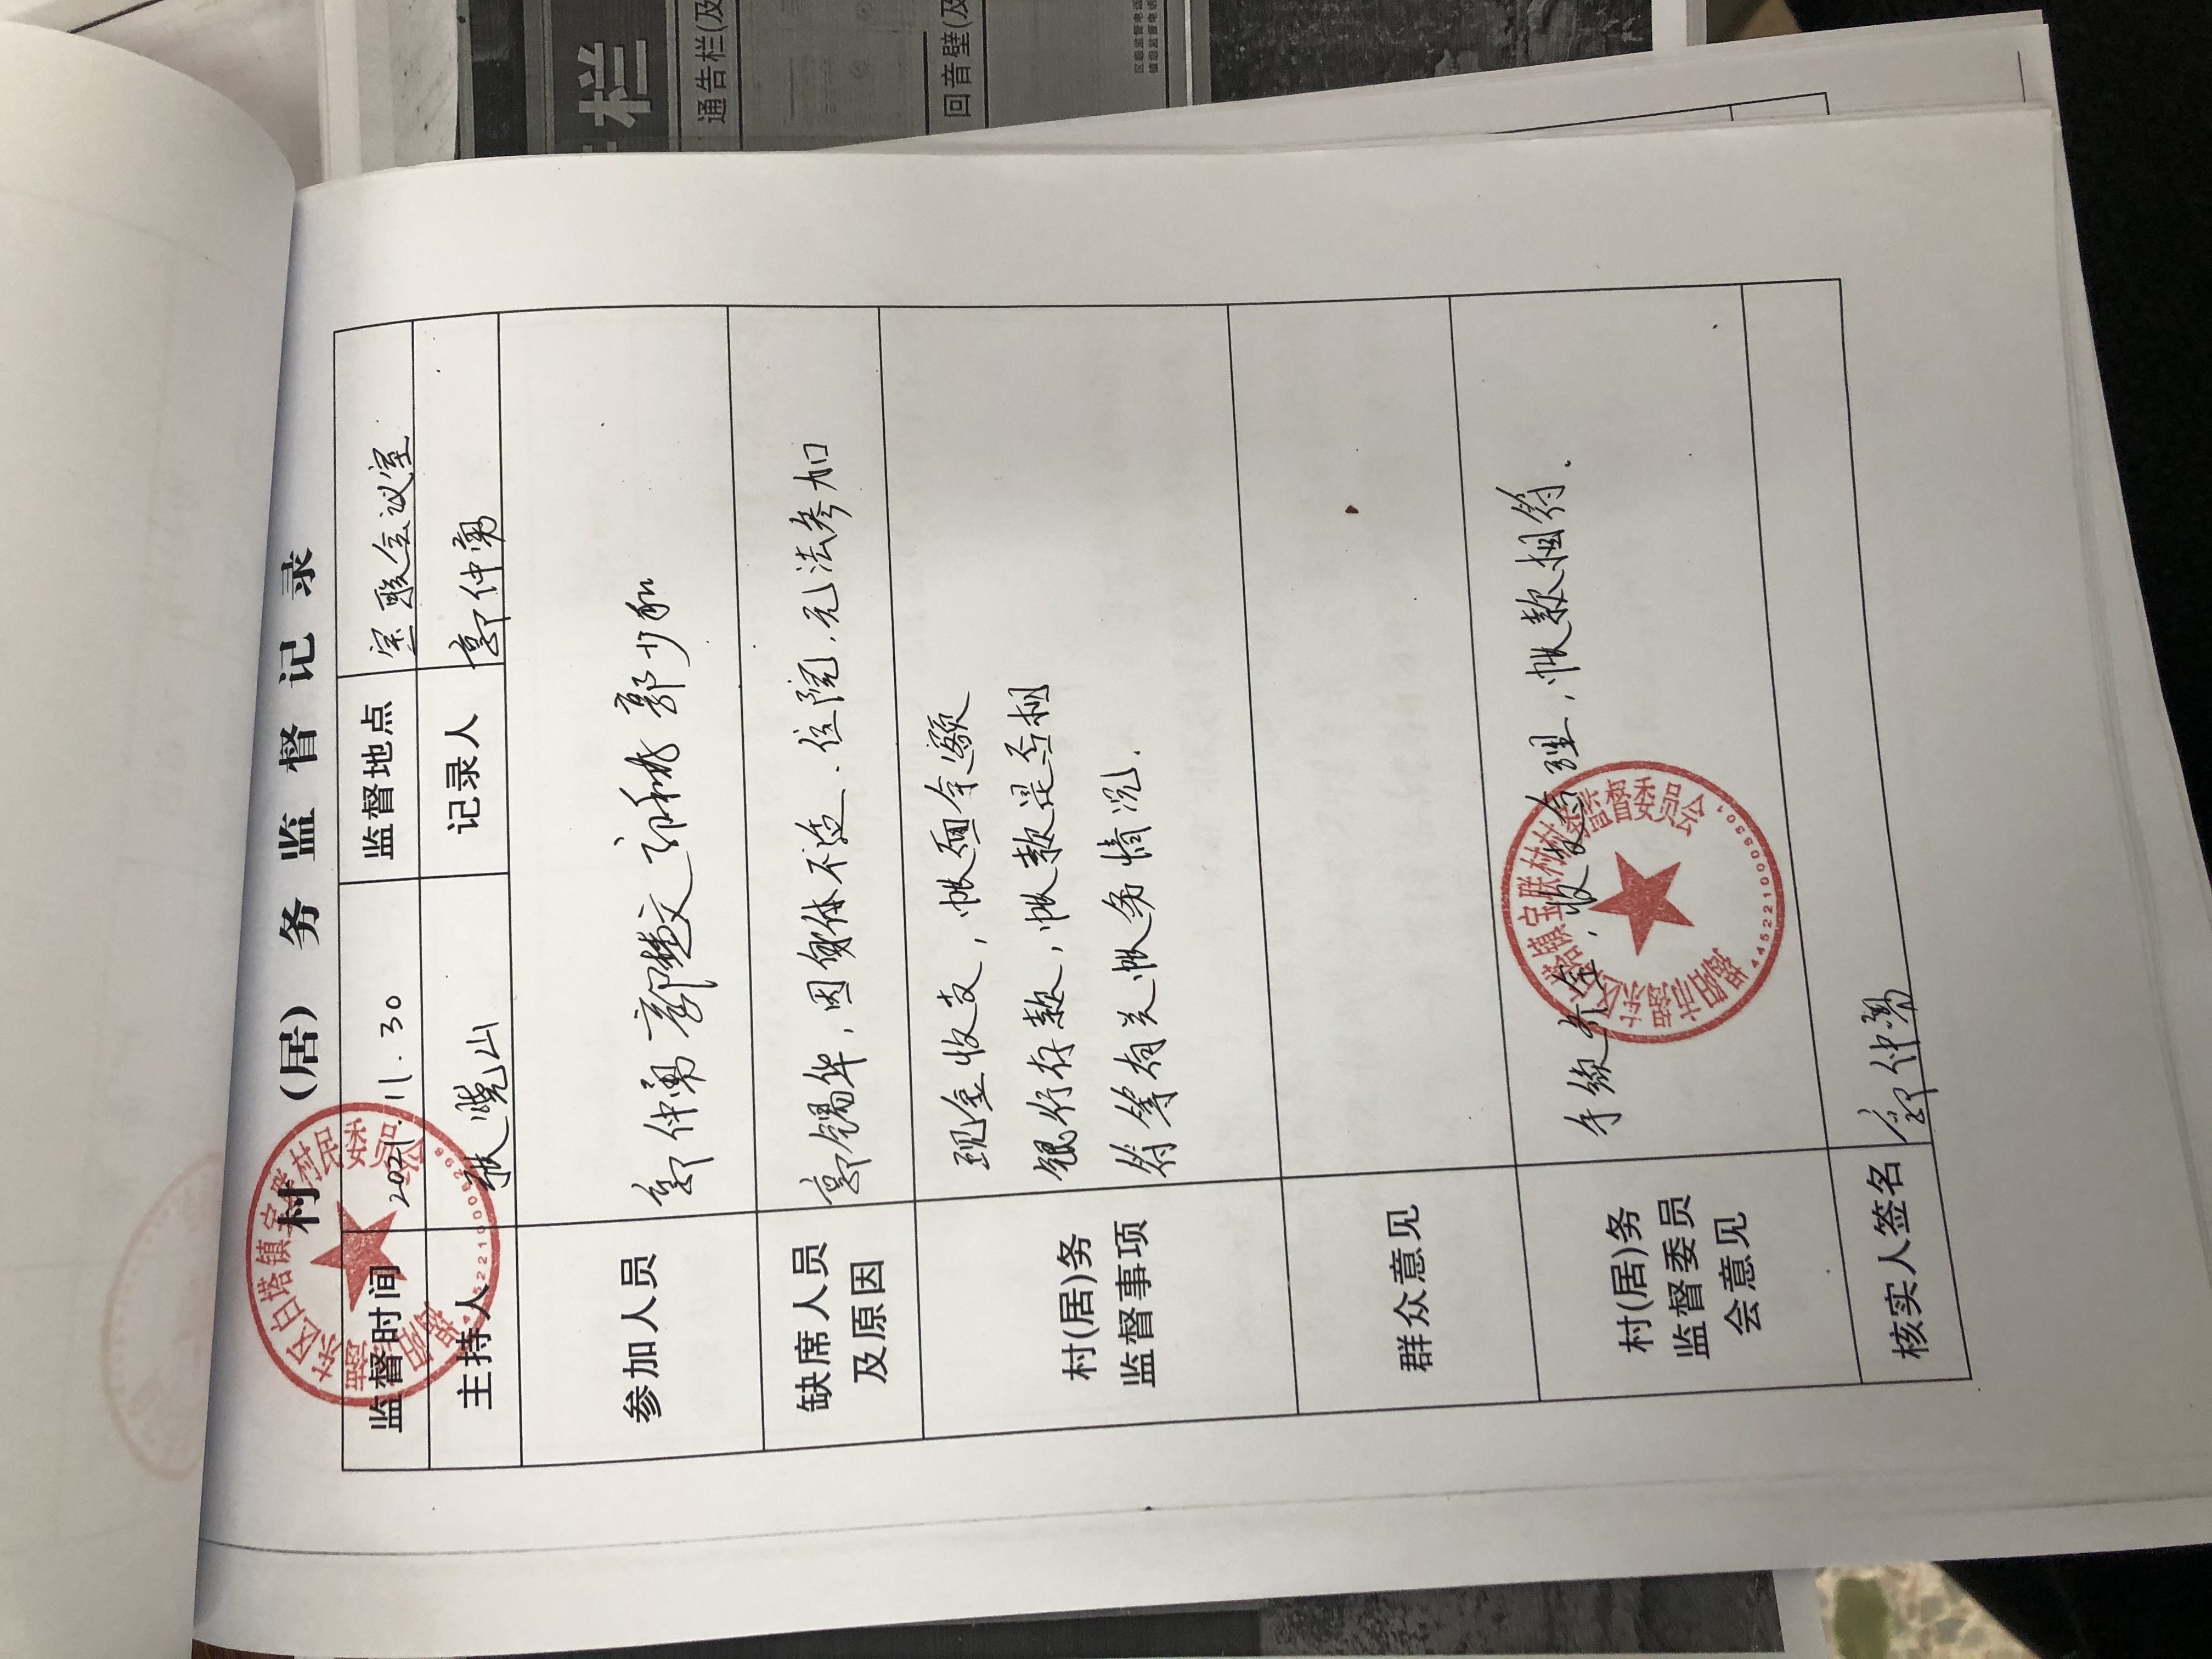 村（居）务监督记录
监督时间 2021.11.30 监督地点 宝联会议室
主持人 张晓山 记录人 郭仲勇
参加人员 郭仲勇 郭楚文 郭少和
缺席人员及原因 郭锡华，因身体不适、住院，无法参加
村(居)务
监督事项
现金收支，帐面余额
银行存款，帐款是否相
符等有关帐务情况.
群众意见
村(居)务
监督委员
会意见
手续齐全，收支合理，帐款相符.
核实人签名 郭仲勇
揭阳市揭东区白塔镇宝联村村民委员会
揭阳市揭东区白塔镇宝联村村务监督委员会
4452210005301
栏
通告栏(及
回音壁(及